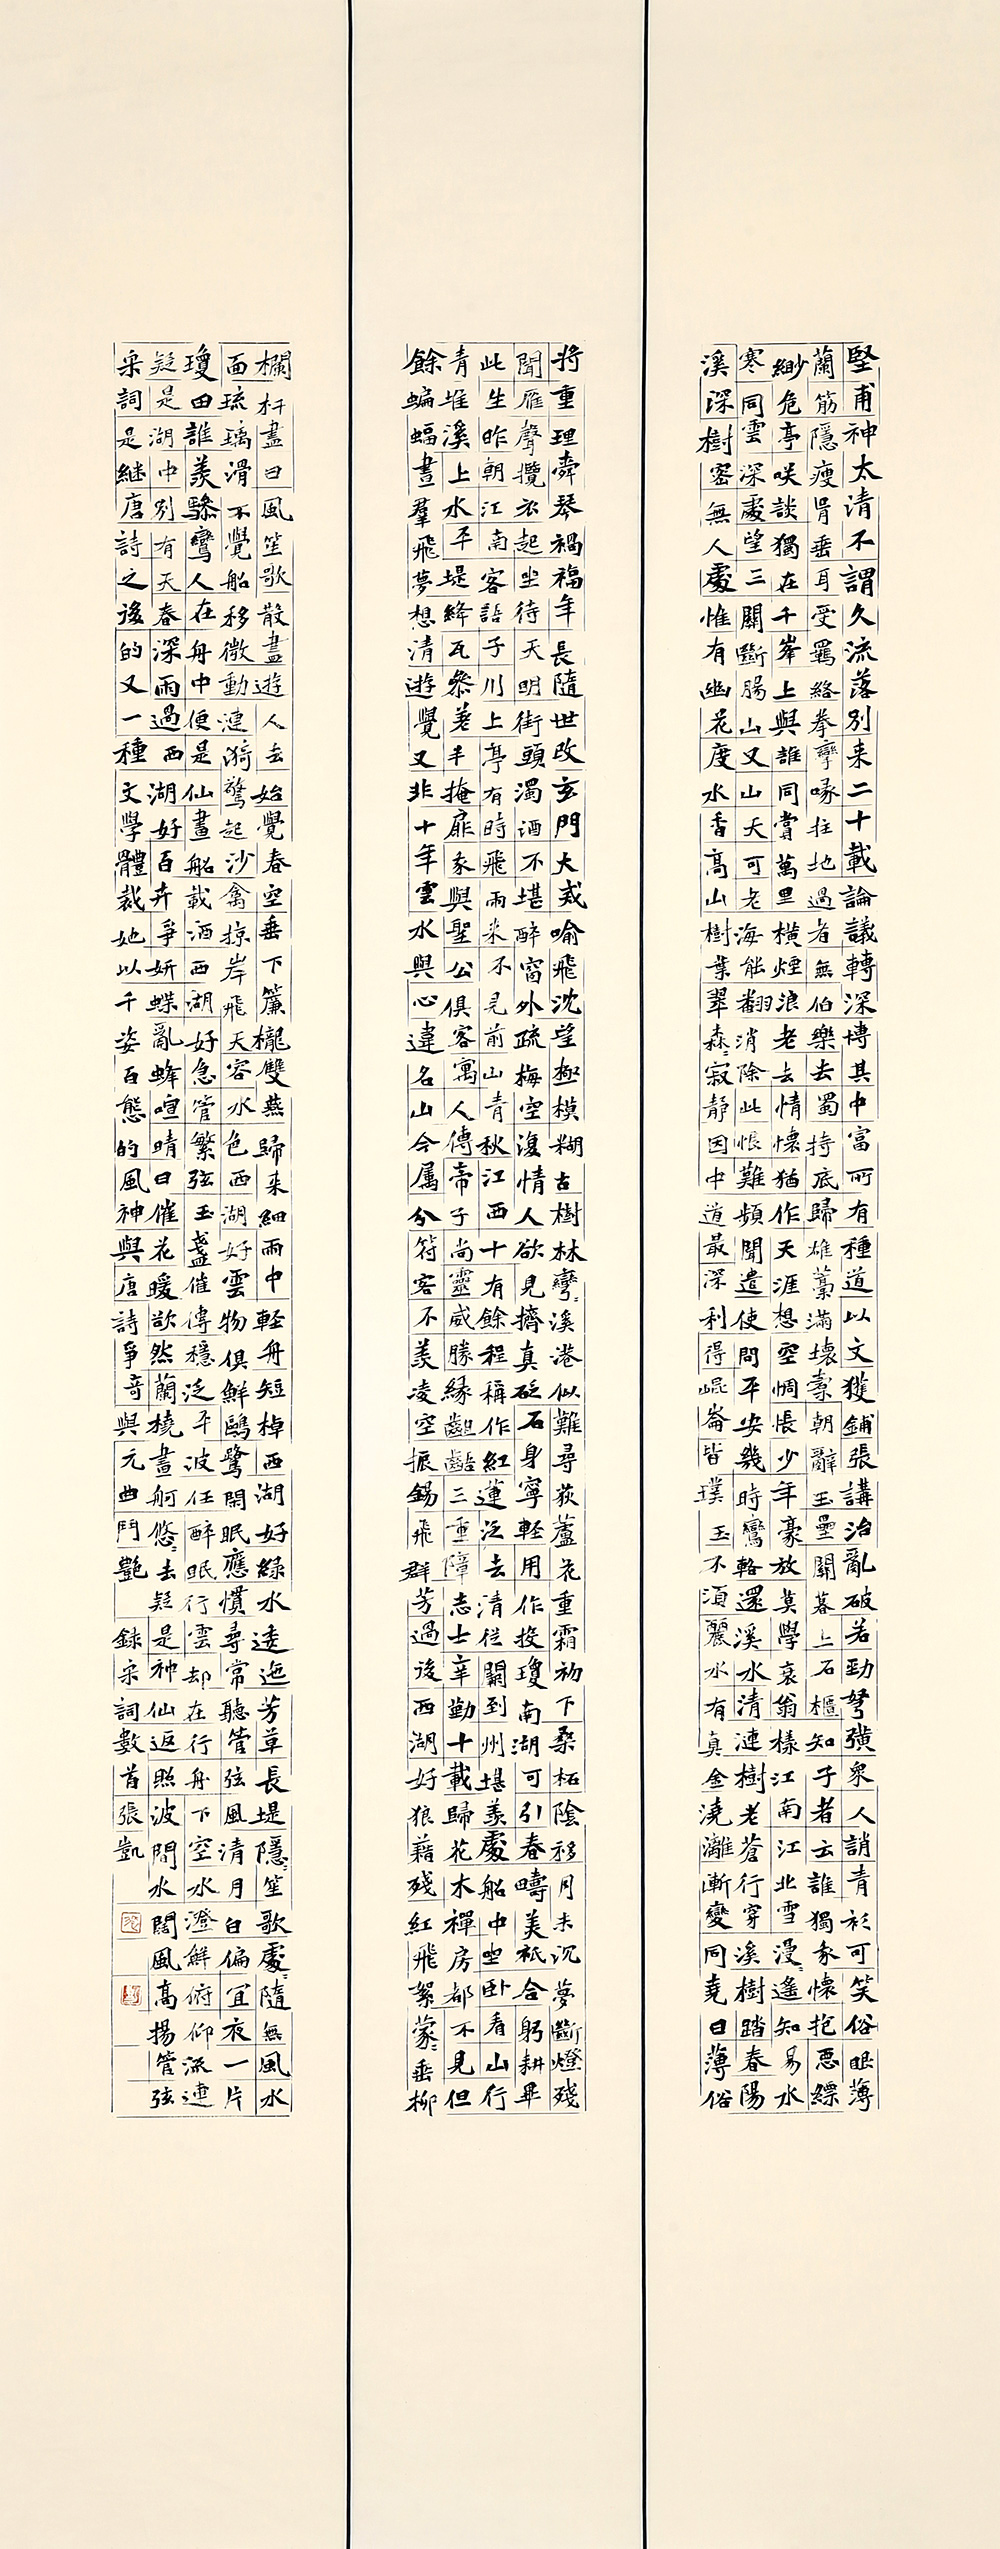 堅甫神太清不謂久流落別来二十載論議轉深博其中富所有種道以文獲鋪張講治亂破若勁弩彉衆人誚青衫可笑俗眼薄
蘭筋隱瘦骨垂耳受羈絡拳攣啄拄地過者無伯樂去蜀持底歸雄藁滿壞橐朝辭玉壘關暮上石樞知子者云誰獨余懷抱惡縹
緲危亭咲談獨在千峯上與誰同賞萬里橫煙浪老去情懷猶作天涯想空惆悵少年豪放莫學衰翁樣江南江北雪漫〻遙知易水
寒同雲深處望三關斷腸山又山天可老海能翻消除此恨難頻聞遣使問平安幾時鸞輅還溪水清漣樹老蒼行穿溪樹踏春陽
溪深樹密無人處惟有幽花度水香高山樹葉翠森〻寂靜因中道最深利得崐崙皆璞玉不須麗水有真金澆漓漸變同堯日薄俗
将重理舜琴禍福年長隨世改玄門大或喻飛沈望極模糊古樹林彎〻溪港似難尋荻蘆花重霜初下桑柘陰移月未沉夢斷燈殘
聞雁聲攬衣起坐待天明街頭濁酒不堪醉窗外疏梅空復情人欲見擠真砭石身寧輕用作投瓊南湖可引春疇美衹合躬耕畢
此生昨朝江南客語子川上亭有時飛雨来不見前山青秋江西十有餘程稱作紅蓮泛去清從闢到州堪羨處船中坐卧看山行
青堆溪上水平堤絳瓦叅差半掩扉豕與聖公俱客寓人傳帝子尚靈威勝緣齟齬三重障志士辛勤十載歸花木禪房都不見但
餘蝙蝠晝羣飛夢想清遊覺又非十年雲水與心違名山今属分符客不羨凌空振錫飛群芳過後西湖好狼藉殘紅飛絮蒙〻垂柳
欄杆盡日風笙歌散盡遊人去始覺春空垂下簾櫳雙燕歸来細雨中輕舟短棹西湖好綠水逶迤芳草長堤隱〻笙歌處〻隨無風水
面琉璃滑不覺船移微動漣漪驚起沙禽掠岸飛天容水色西湖好雲物俱鮮鷗鷺閑眠應慣尋常聽管弦風清月白偏宜夜一片
瓊田誰羨驂鸞人在舟中便是仙畫船載酒西湖好急管繁弦玉盞催傳穩泛平波任醉眠行雲却在行舟下空水澄鮮俯仰流連
疑是湖中別有天春深雨過西湖好百卉爭妍蝶亂蜂喧晴日催花暖欲然蘭橈畫舸悠〻去疑是神仙返照波間水闊風高揚管弦
宋詞是継唐詩之後的又一種文學體裁她以千姿百態的風神與唐詩爭奇與元曲鬥艷 錄宋詞數首張凱